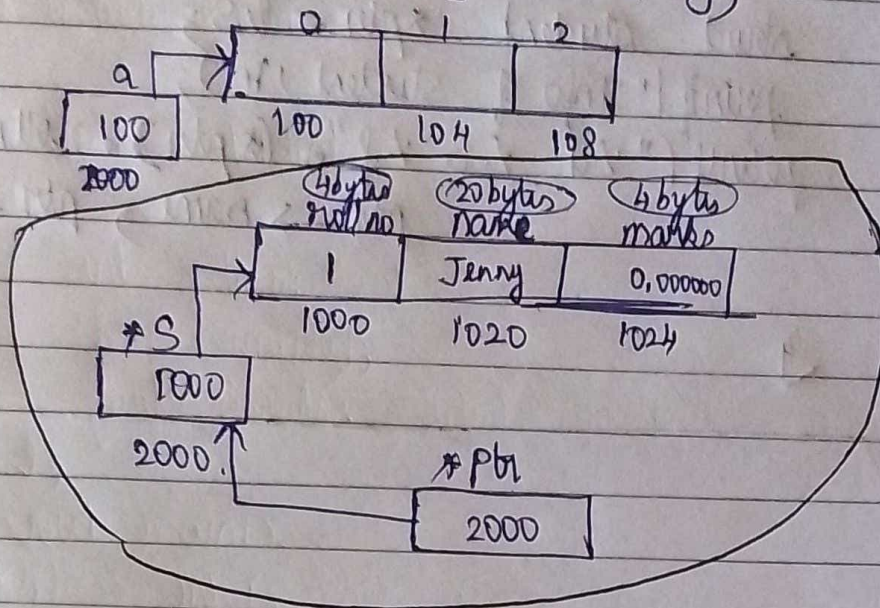 0 1 2
a
100
100 104 108
2000
4bytes 20bytes 4bytes
roll no name marks
1 Jenny 0.000000
1000 1020 1024
*S
1000
2000.
*ptr
2000